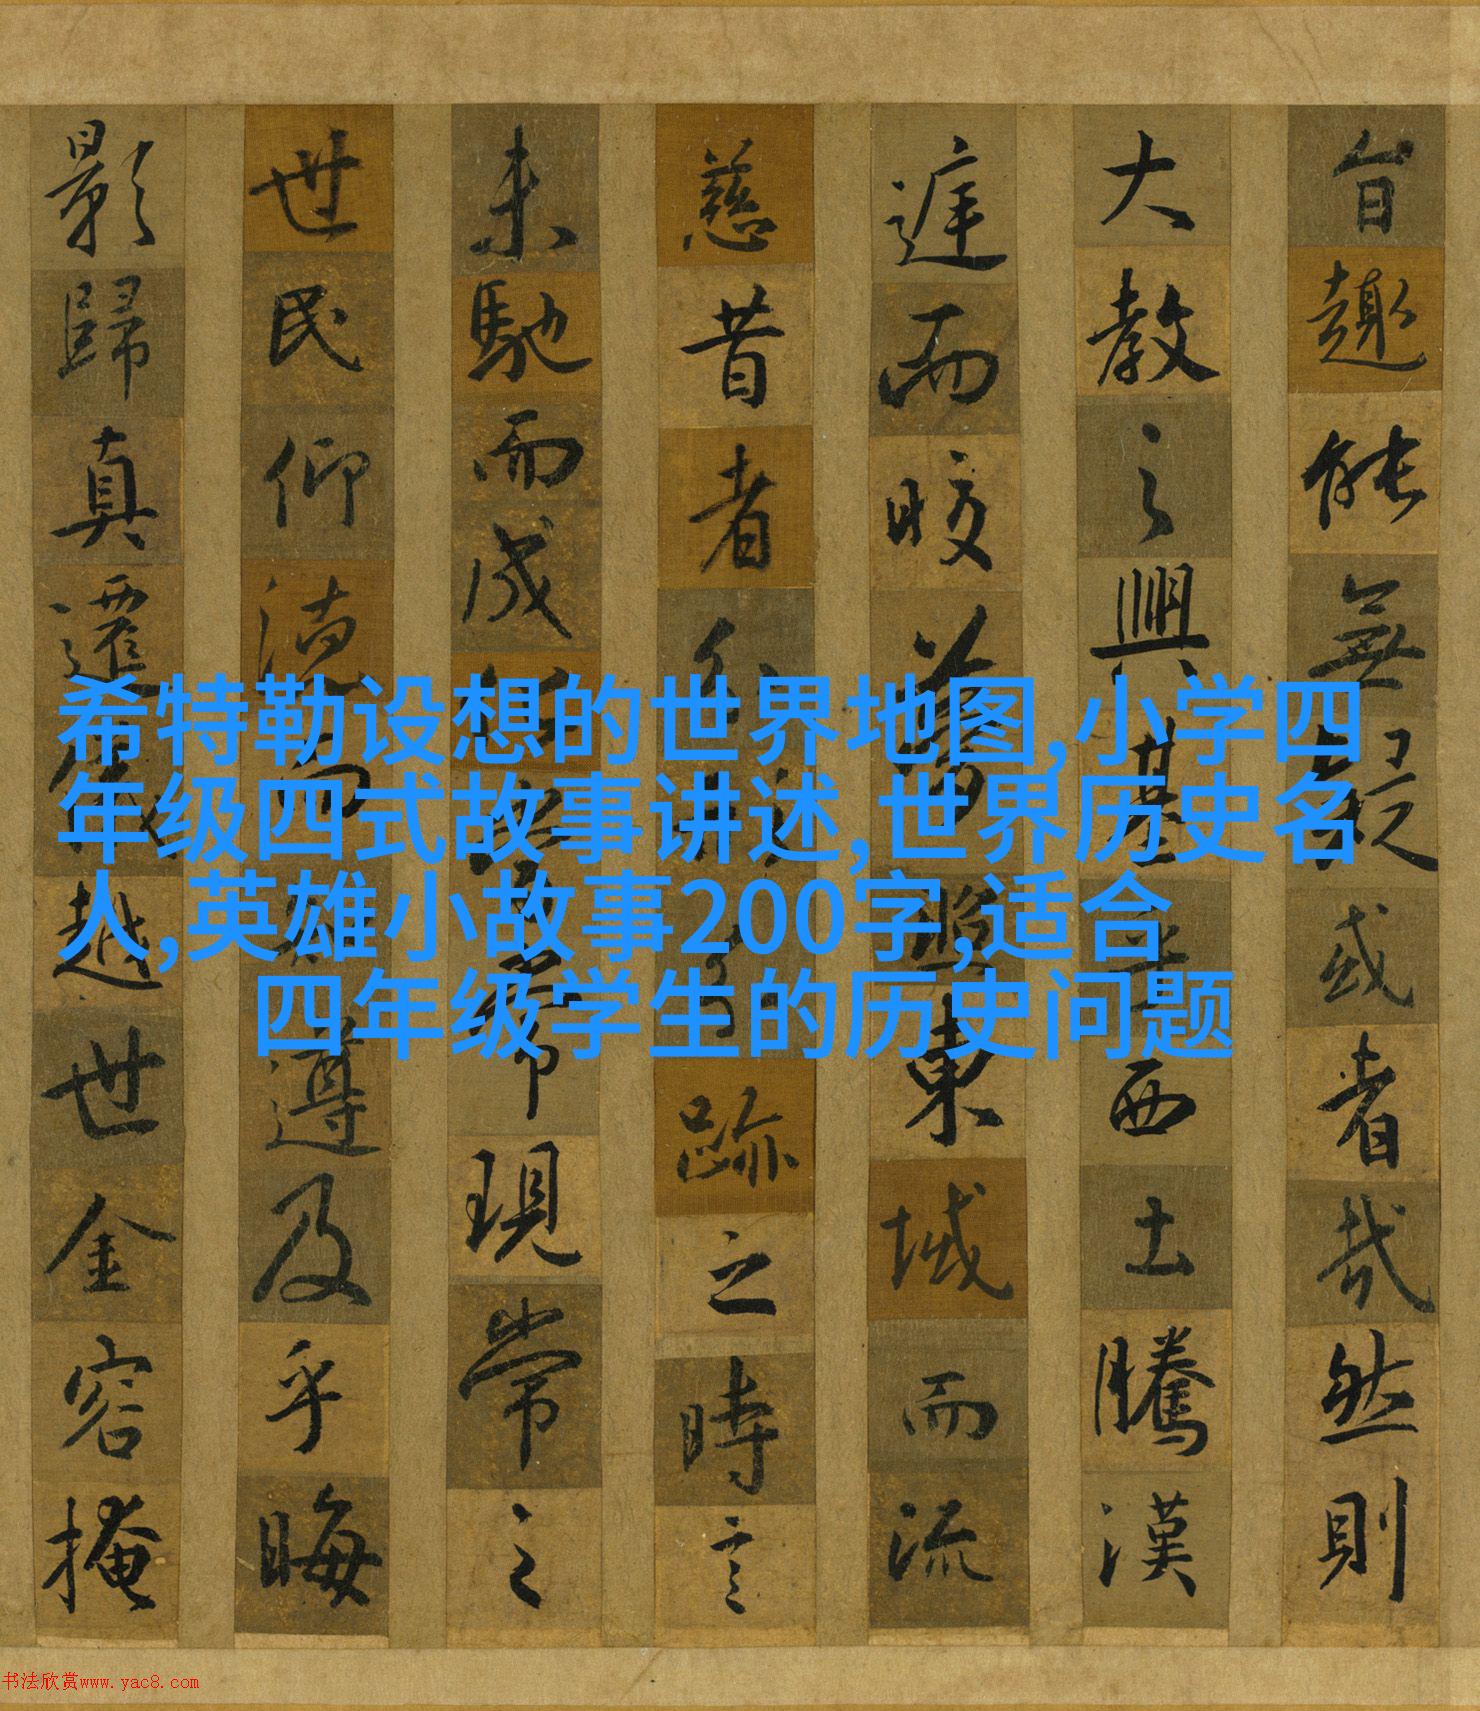 旨趣能無疑或者哉然則
大教之興基乎西土騰漢
庭而皎夢照東域而流
慈昔者分形分跡之時言
未馳而成化當常現常之
世民仰德而知遵及乎晦
影歸真遷儀越世金容掩
希特勒设想的世界地图,小学四
年级四式故事讲述,世界历史名
人,英雄小故事200字,适合
四年级学生的历史问题
书法欣赏www.yac8.com